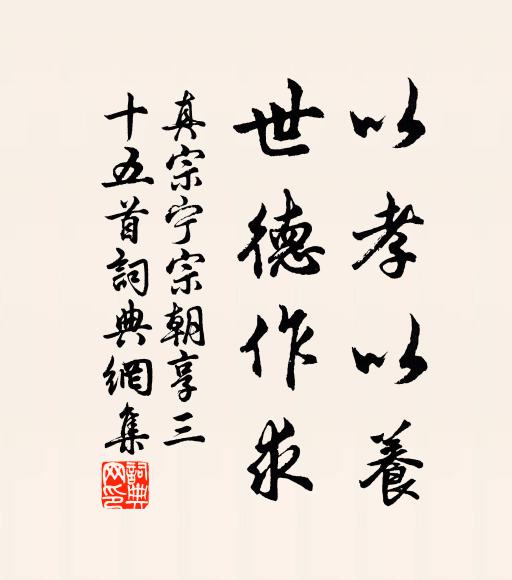 以孝以養
世德作求
真宗宁宗朝享三
十五首詞典網集
詞典網印